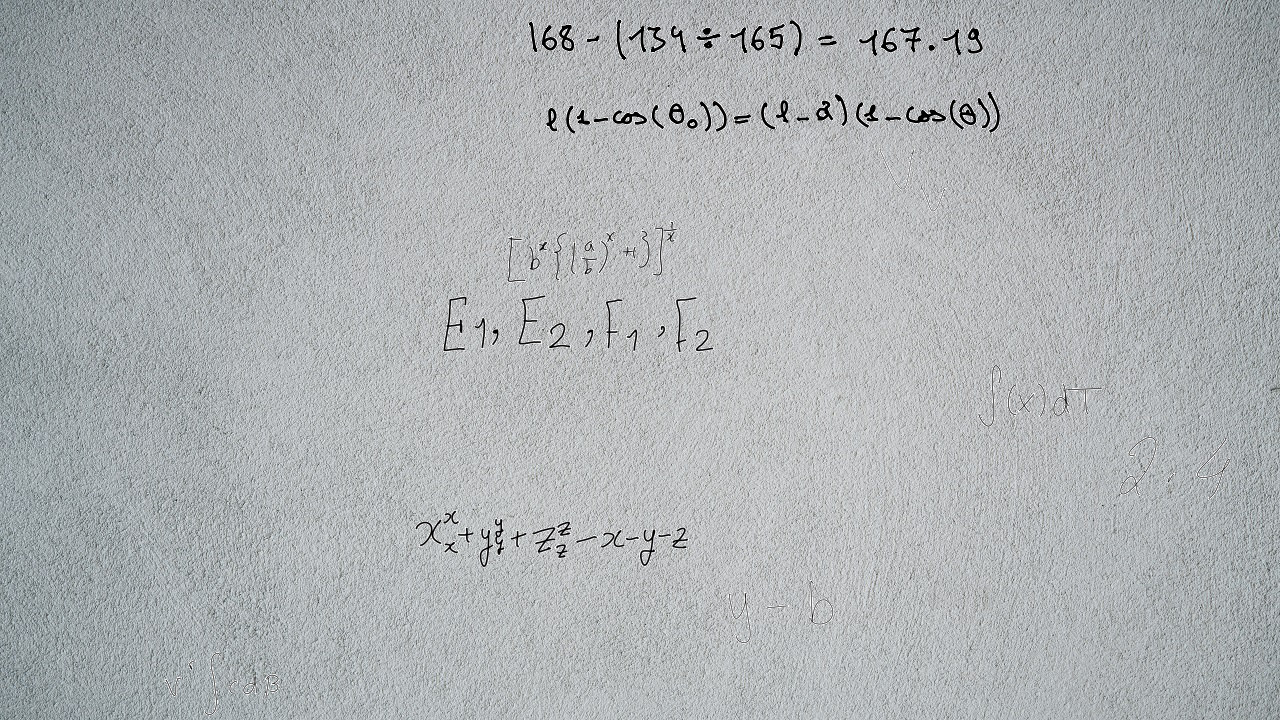 168 - (134 ÷ 165) = 167.19
l(1-cos(θ₀))=(l-a)(1-cos(θ))
[b^x{(a/b)^x+1}]^{1/x}
E₁, E₂, F₁, F₂
∫(x)dT
2.4
x_x^x+y_y^y+z_z^z-x-y-z
y - b